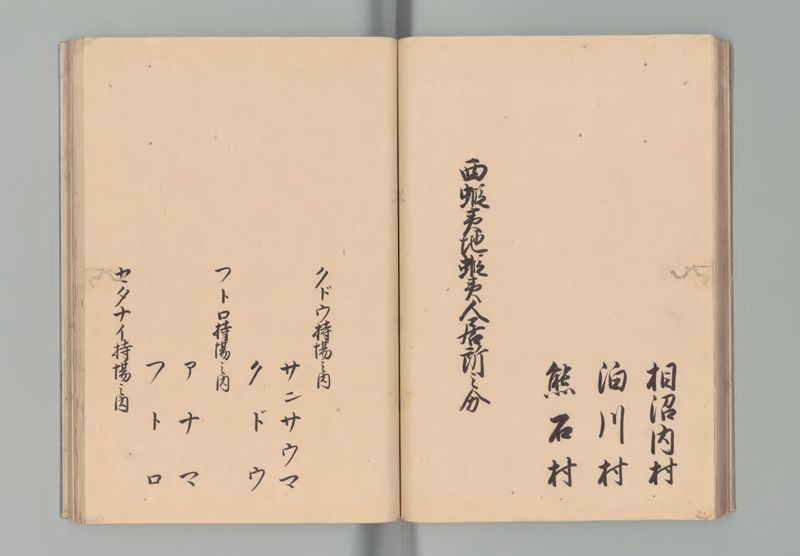 相沼内村
泊川村
熊石村
西蝦夷地蝦夷人居所之分
クドウ持場之内
サニサウマ
クドウ
フトロ持場之内
アナマ
フトロ
セタナイ持場之内